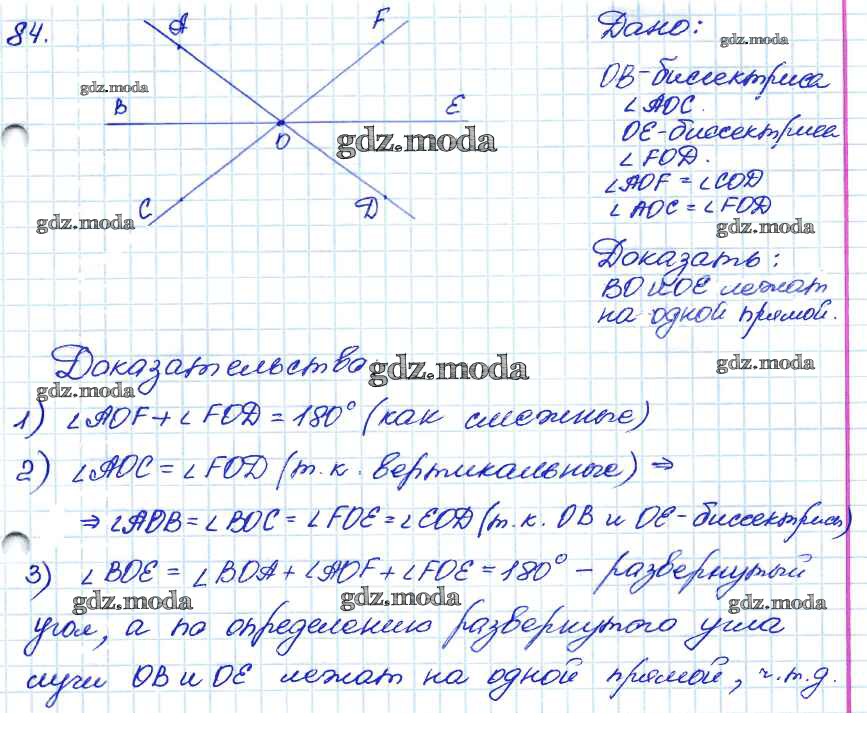 84.
A
F
B
E
O
C
D
Дано:
OB-биссектриса
∠AOC.
OE-биссектриса
∠FOD.
∠AOF = ∠COD
∠AOC = ∠FOD
Доказать:
BO и OE лежат
на одной прямой.
Доказательства
1) ∠AOF + ∠FOD = 180° (как смежные)
2) ∠AOC = ∠FOD (т.к. вертикальные) ⇒
⇒ ∠AOB = ∠BOC = ∠FOE = ∠EOD (т.к. OB и OE-биссектрисы)
3) ∠BOE = ∠BOA + ∠AOF + ∠FOE = 180° – развернутый
угол, а по определению развернутого угла
лучи OB и OE лежат на одной прямой, ч.т.д.
gdz.moda
gdz.moda
gdz.moda
gdz.moda
gdz.moda
gdz.moda
gdz.moda
gdz.moda
gdz.moda
gdz.moda
gdz.moda